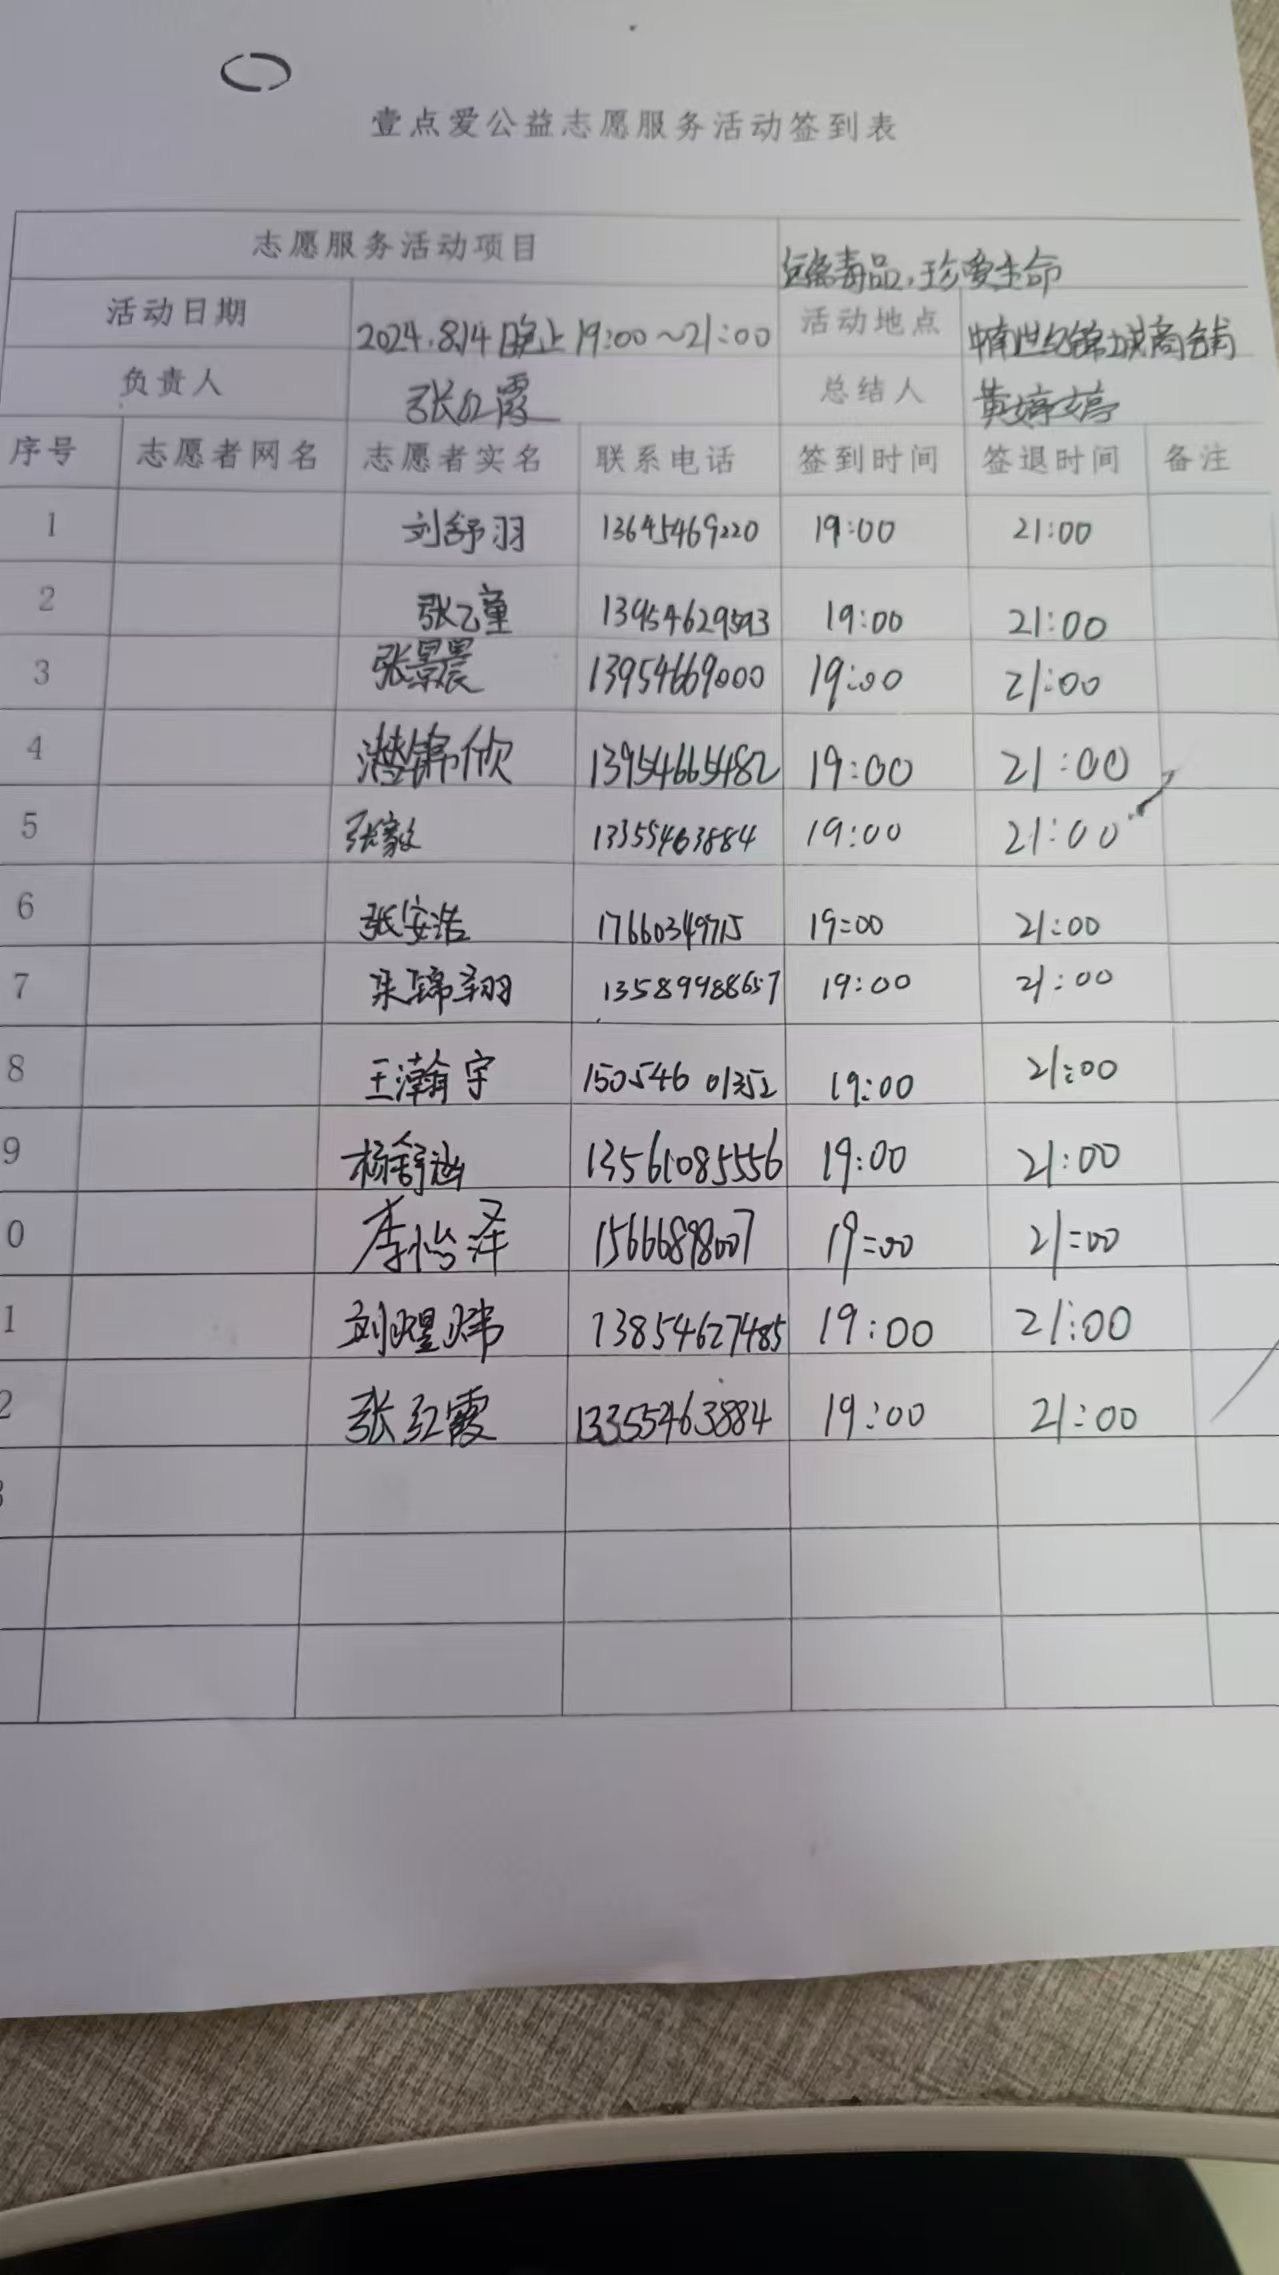 壹点爱公益志愿服务活动签到表
志愿服务活动项目 远离毒品,珍爱生命
活动日期 2024.8.14晚上19:00~21:00 活动地点 中南世纪锦城商铺
负责人 张红霞 总结人 黄婷婷
序号 志愿者网名 志愿者实名 联系电话 签到时间 签退时间 备注
1 刘舒羽 13645469220 19:00 21:00
2 张乙童 13954629593 19:00 21:00
3 张景晨 13954669000 19:00 21:00
4 锦欣 13954665482 19:00 21:00
5 张毅 13355463884 19:00 21:00
6 张安浩 17660349715 19:00 21:00
7 宋锦翔 13589988657 19:00 21:00
8 王瀚宇 150546 01352 19:00 21:00
9 杨舒涵 13561085556 19:00 21:00
0 李怡泽 15666898007 19:00 21:00
1 刘煜炜 13854627485 19:00 21:00
2 张红霞 13355463884 19:00 21:00
3